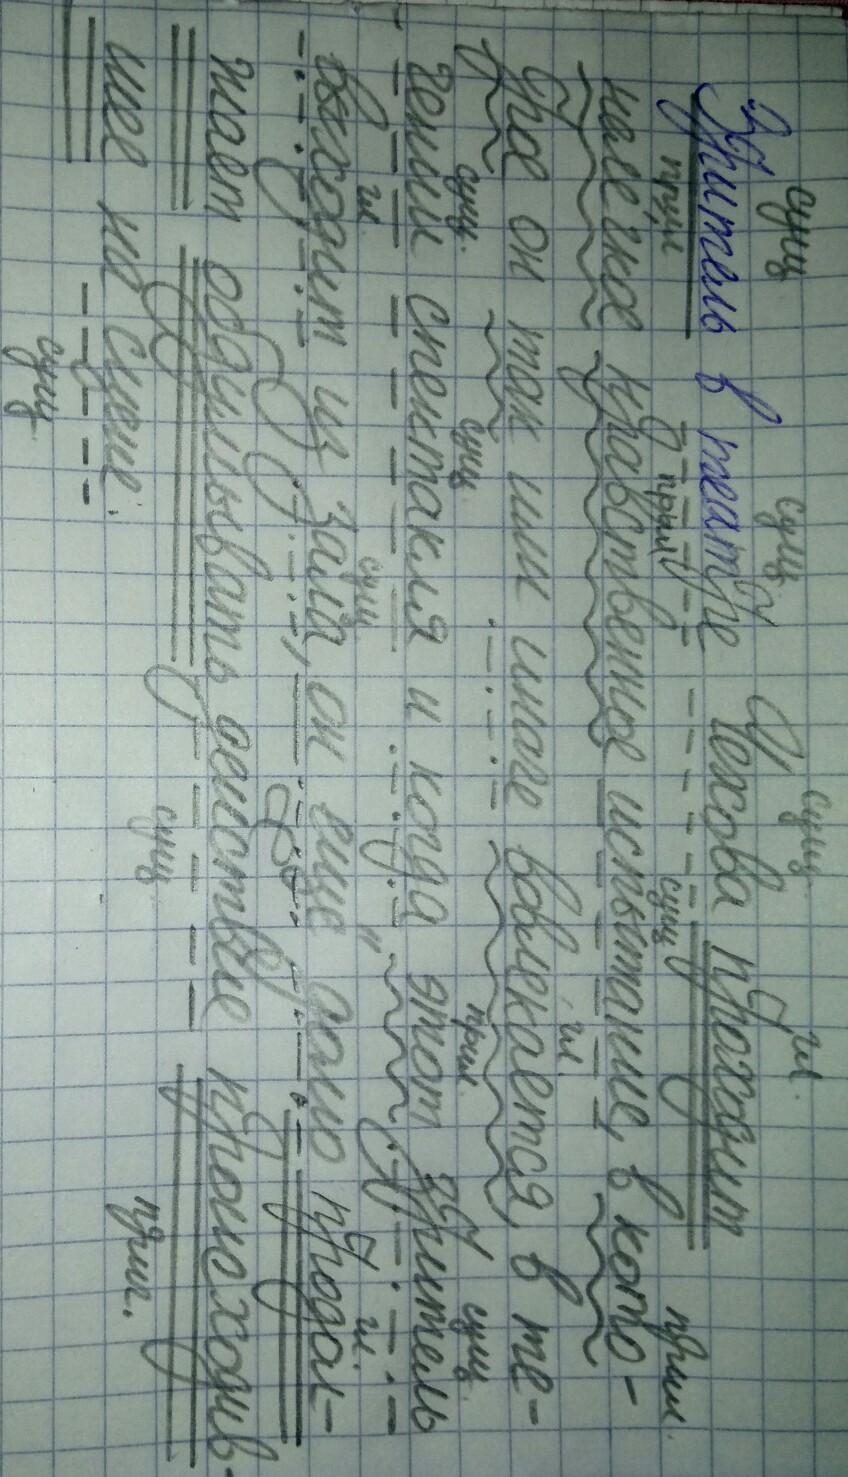 сущ. сущ. сущ. гл.
Зритель в театре Чехова проходит
прил. прил. сущ. прил.
нелегкое нравственное испытание, в кото-
гл.
рое он так или иначе вовлекается, в те-
сущ. сущ. прил. сущ.
чении спектакля и когда этот зритель
гл. сущ. гл.
выходит из зала, он еще долго продол-
жает обдумывать действие происходив-
сущ. прич.
шее на сцене.
сущ.